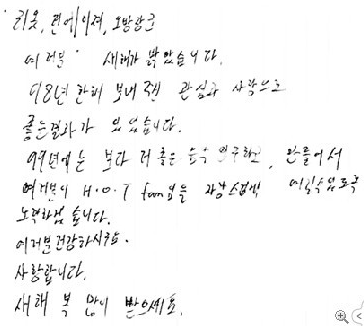 여러분 새해가 밝았습니다.
98년 한해 보내준 관심과 사랑으로
좋은결과가 있었습니다.
99년에는 보다 더 좋은 음악 연구하고, 만들어서
여러분이 H.O.T fan임을 자랑스럽게 여길수있도록
노력하겠습니다.
여러분건강하시구요.
사랑합니다.
새해 복 많이 받으세요.